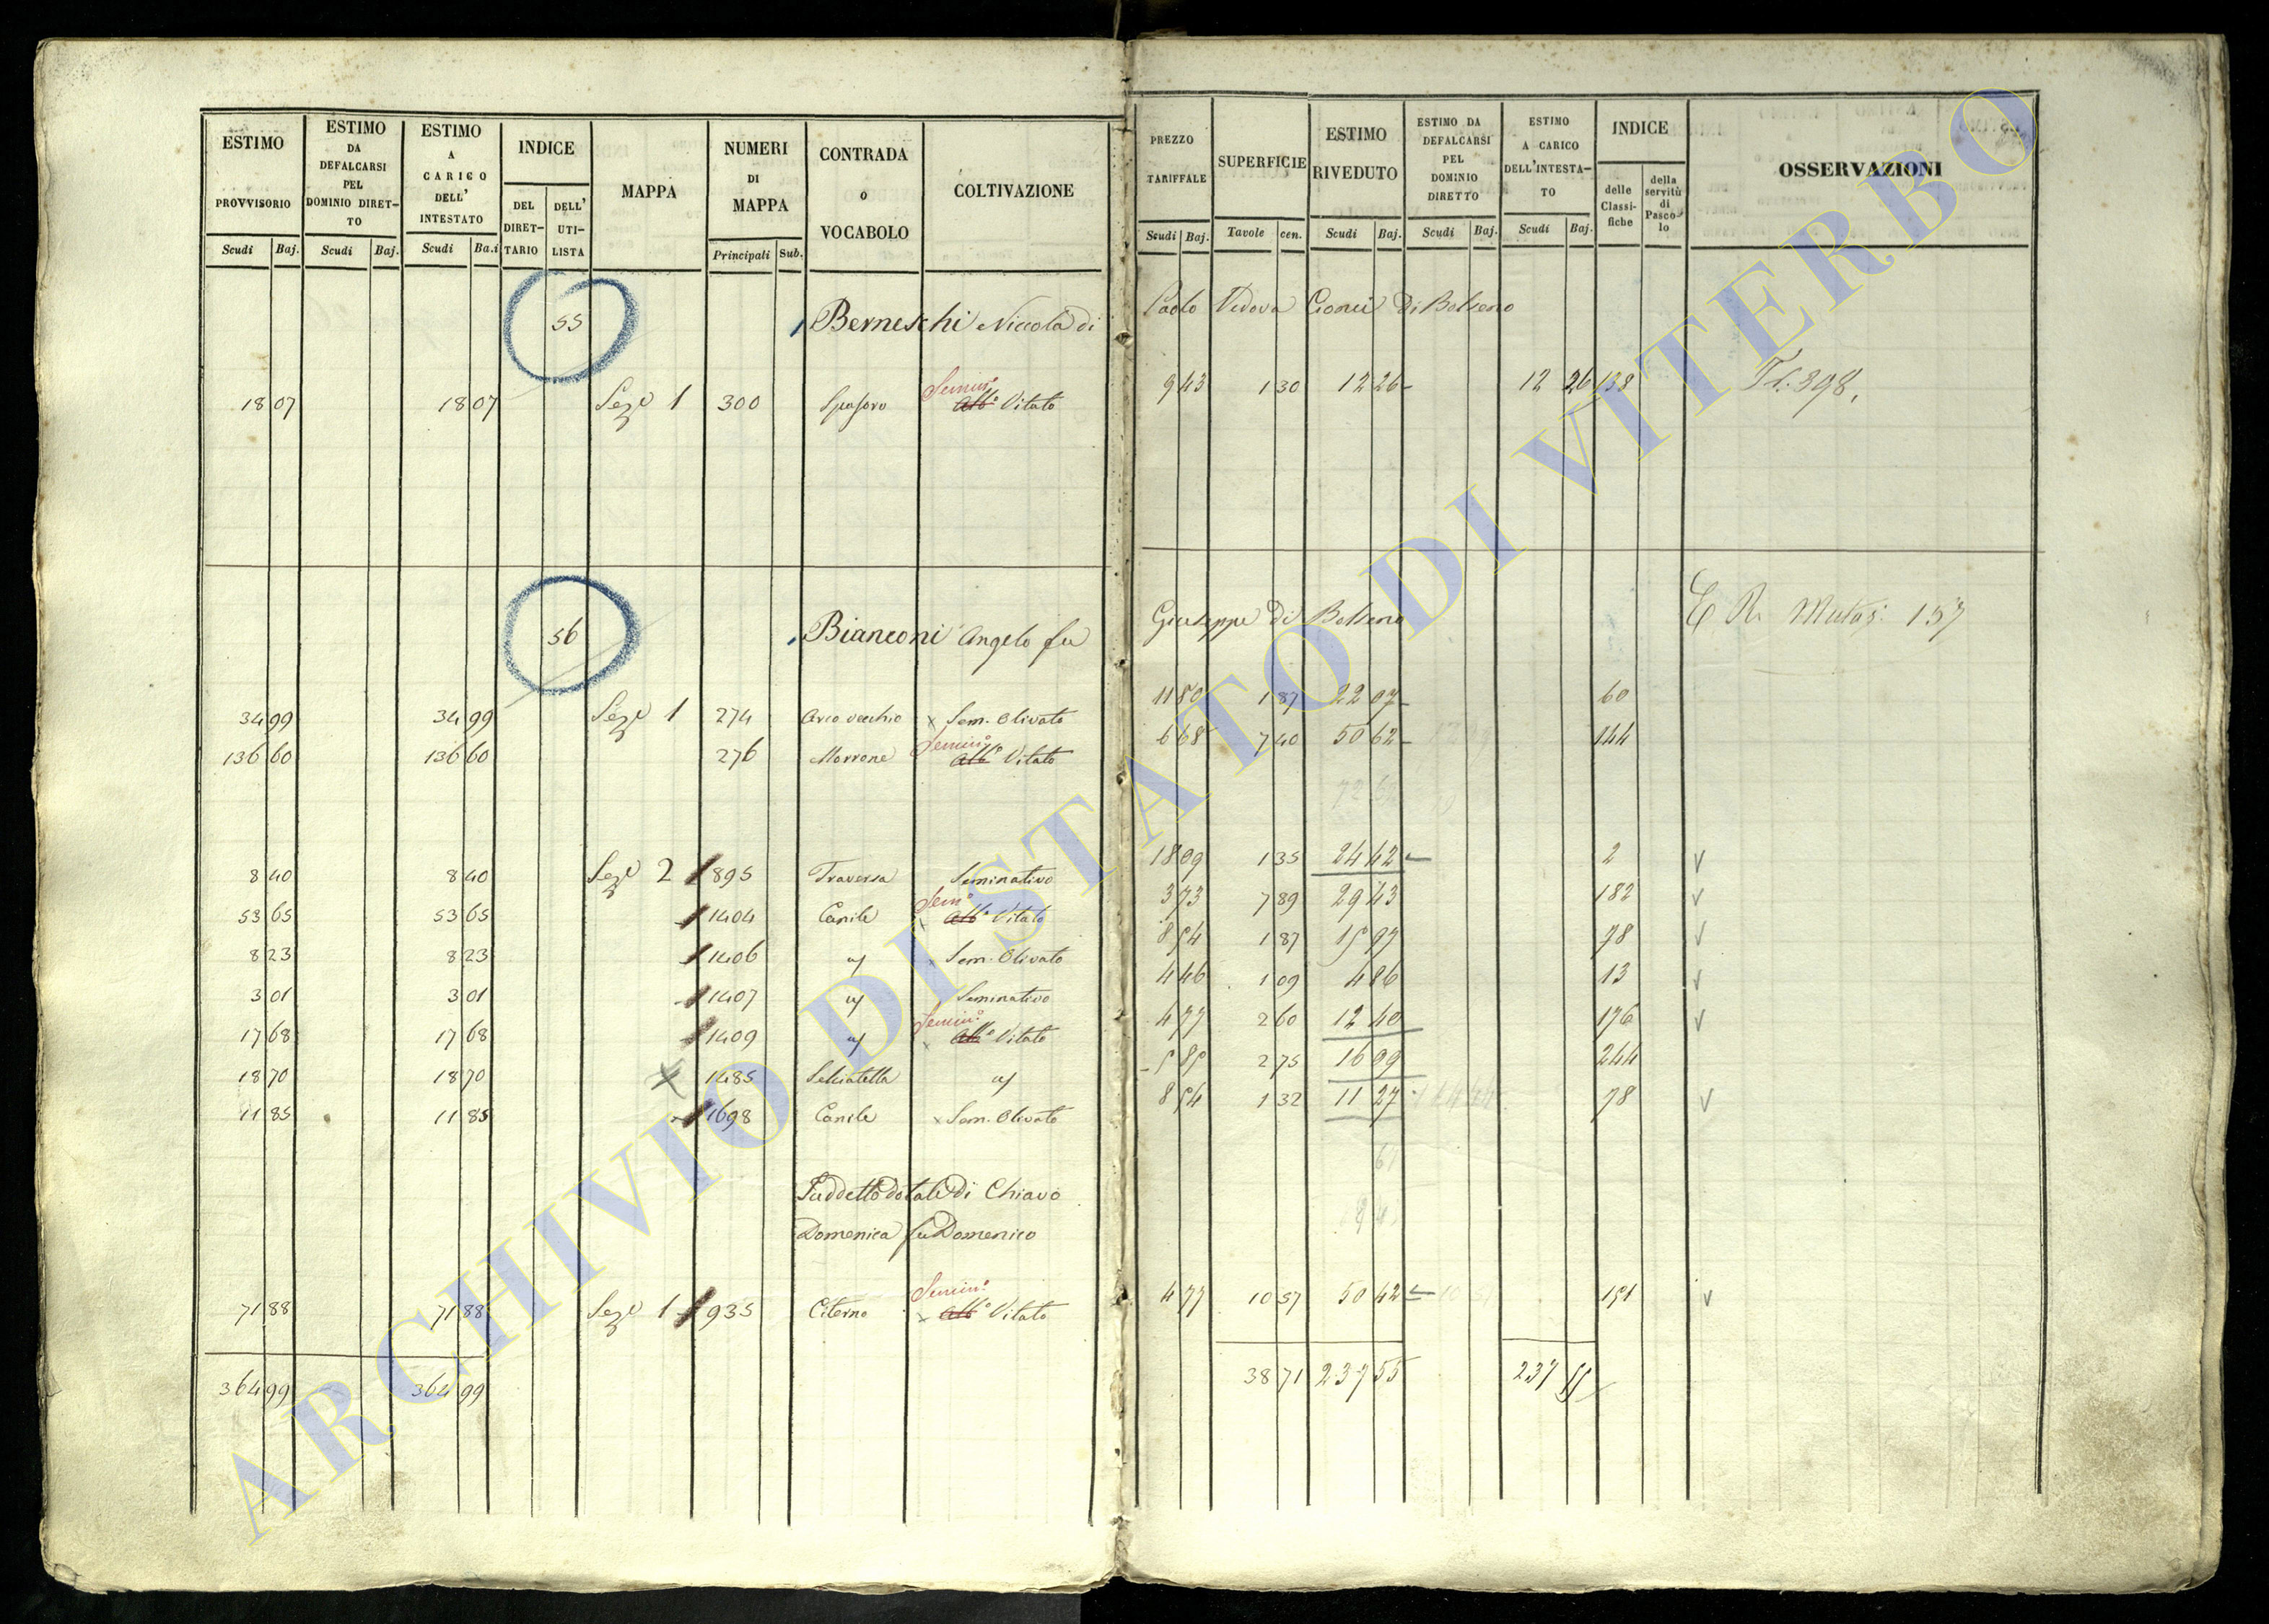 ESTIMO PROVVISORIO Scudi Baj. ESTIMO DA DEFALCARSI PEL DOMINIO DIRETTO Scudi Baj. ESTIMO A CARICO DELL' INTESTATO Scudi Ba.i INDICE DEL DIRETTARIO DELL' UTILISTA MAPPA NUMERI DI MAPPA Principali Sub. CONTRADA o VOCABOLO COLTIVAZIONE PREZZO TARIFFALE Scudi Baj. SUPERFICIE Tavole cen. ESTIMO RIVEDUTO Scudi Baj. ESTIMO DA DEFALCARSI PEL DOMINIO DIRETTO Scudi Baj. ESTIMO A CARICO DELL'INTESTATO Scudi Baj. INDICE delle Classifiche della servitù di Pascolo OSSERVAZIONI
55 Berneschi Niccola di Paolo Vedova Cionci di Bolseno
18 07 18 07 Sez.e 1 300 Semin.o Alb.o Vitato 9 43 1 30 12 26 12 26 138 398
56 Bianconi Angelo fu Giuseppe di Bolseno E R. Mutaz: 157
34 99 34 99 Sez.e 1 274 Arco vecchio x Sem. Olivato 11 80 1 87 22 07 60
136 60 136 60 276 Morrone Semin.o Alb.o Vitato 6 68 7 40 50 62 144
72 69
8 40 8 40 Sez.e 2 895 Traversa Seminativo 18 09 1 35 24 42 2 v
53 65 53 65 1404 Canile Sem.o Alb.o Vitato 3 73 7 89 29 43 182 v
8 23 8 23 1406 " x Sem. Olivato 8 54 1 87 15 97 78 v
3 01 3 01 1407 " Seminativo 4 46 1 09 4 86 13 v
17 68 17 68 1409 " Semin.o x Alb.o Vitato 4 77 2 60 12 40 176 v
18 70 18 70 x 1485 Selciatella " 5 85 2 75 16 09 244
11 85 11 85 1698 Canile x Sem. Olivato 8 54 1 32 11 27 78 v
Suddetto dotale di Chiavo
Domenica fu Domenico
71 88 71 88 Sez.e 1 935 Citerno Semin.o x Alb.o Vitato 4 77 10 57 50 42 151 v
364 99 364 99 38 71 237 55 237 55
ARCHIVIO DI STATO DI VITERBO